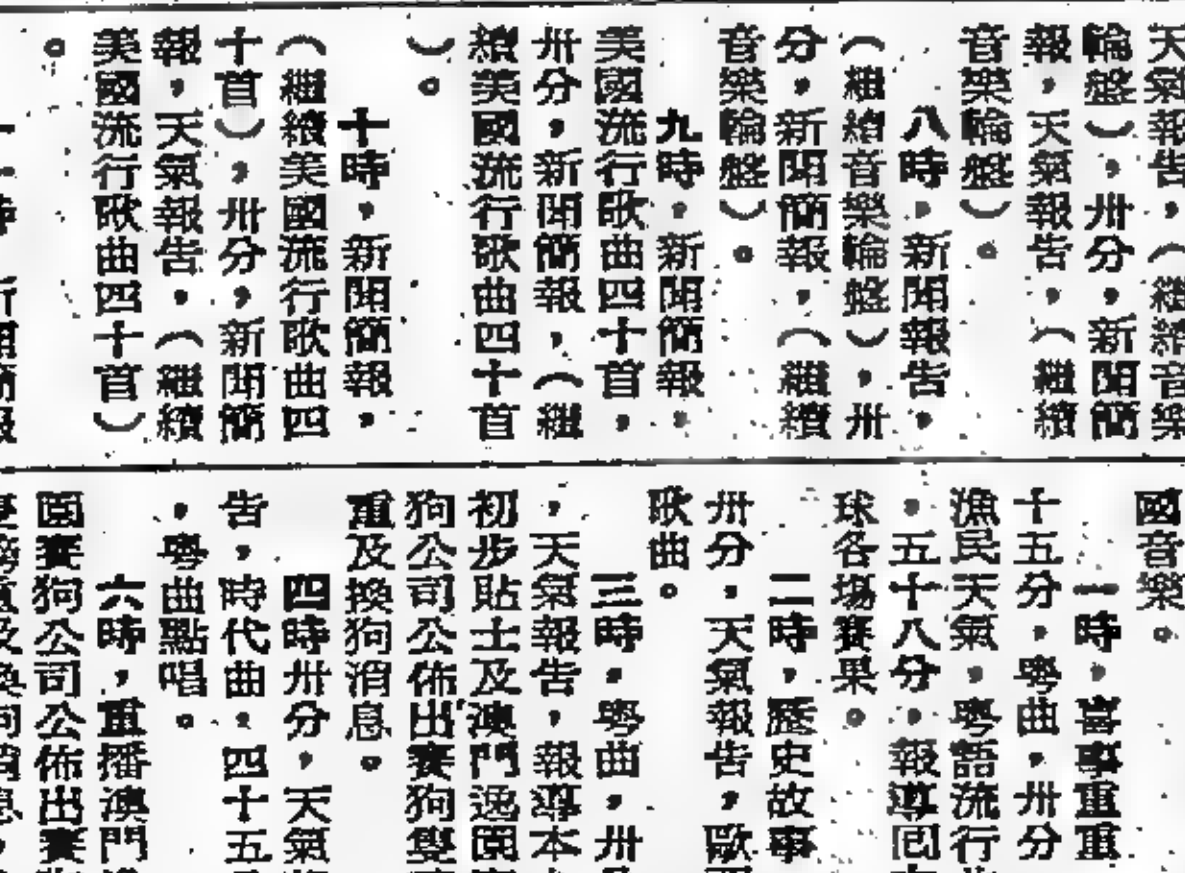 天氣報告，（繼續音樂
輪盤），卅分，新聞簡
報，天氣報告，（繼續
音樂輪盤）。
八時，新聞報告，
（繼續音樂輪盤），卅
分，新聞簡報，（繼續
音樂輪盤）。
九時，新聞簡報，
美國流行歌曲四十首，
卅分，新聞簡報，（繼
續美國流行歌曲四十首
）。
十時，新聞簡報，
（繼續美國流行歌曲四
十首），卅分，新聞簡
報，天氣報告，（繼續
美國流行歌曲四十首）
。
新聞簡報
國音樂。
一時，喜事重重
十五分，粵曲，卅分
漁民天氣，粵語流行
，五十八分，報導回
球各塲賽果。
二時，歷史故事
卅分，天氣報告，歐
歌曲。
三時，粵曲，卅
，天氣報告，報導本
初步貼士及澳門逸園
狗公司公佈出賽狗隻
重及換狗消息。
四時卅分，天氣
告，時代曲，四十五
，粵曲點唱。
六時，重播澳門
園賽狗公司公佈出賽